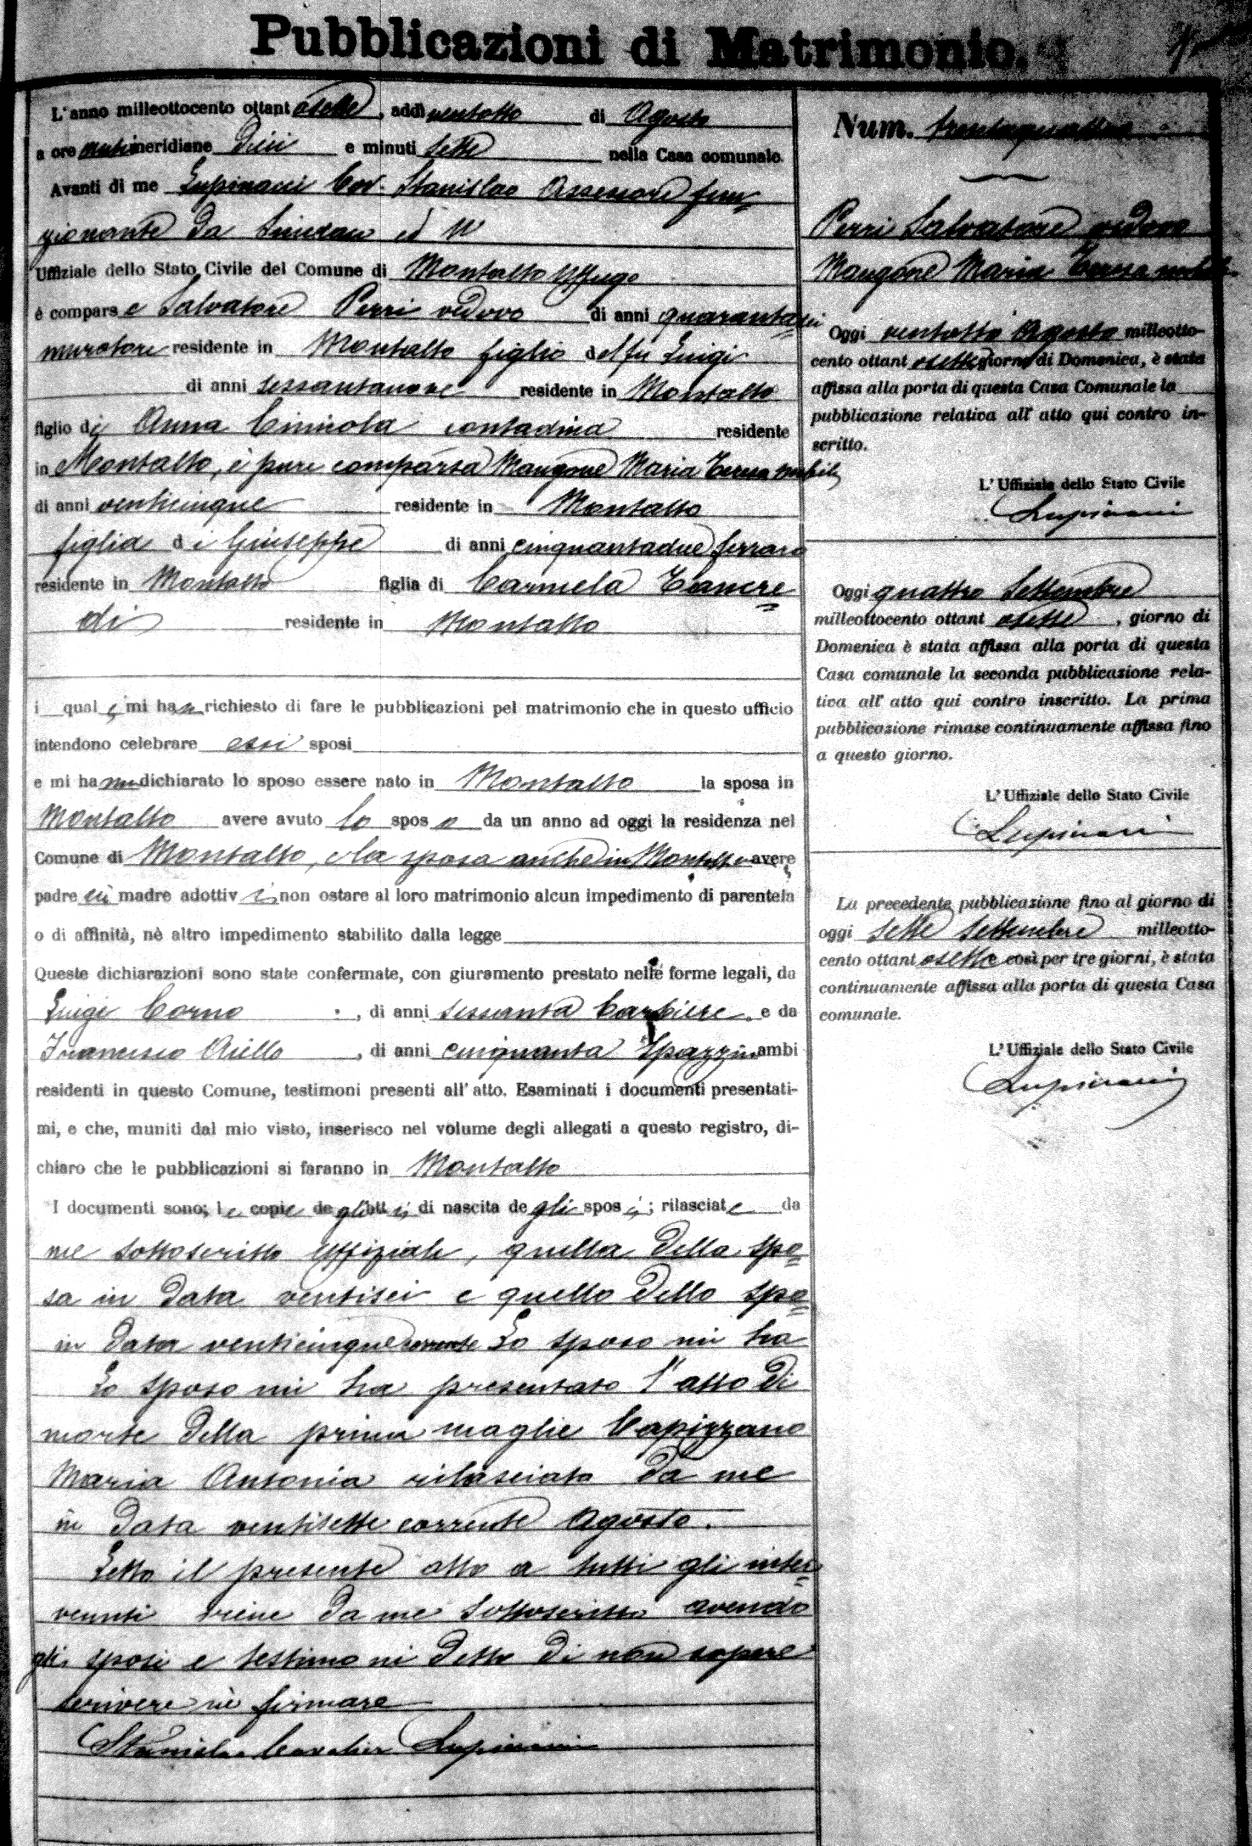 Pubblicazioni di Matrimonio.
L'anno milleottocento ottantasette, addì ventotto di Agosto
a ore antimeridiane dieci e minuti sette nella Casa comunale.
Avanti di me Lupinacci Cav. Stanislao Assessore fun=
zionante da Sindaco ed
Uffiziale dello Stato Civile del Comune di Montalto Uffugo
è comparse Salvatore Perri vedovo di anni quarantasei
muratore residente in Montalto figlio del fu Luigi
di anni sessantanove residente in Montalto
figlio di Anna contadina residente
in Montalto, è pure comparsa Mangone Maria Teresa nubile
di anni venticinque residente in Montalto
figlia di Giuseppe di anni cinquantadue ferraro
residente in Montalto figlia di Carmela Tancre=
di residente in Montalto
i quali mi han richiesto di fare le pubblicazioni pel matrimonio che in questo ufficio
intendono celebrare essi sposi
e mi hanno dichiarato lo sposo essere nato in Montalto la sposa in
Montalto avere avuto lo sposo da un anno ad oggi la residenza nel
Comune di Montalto, e la sposa anche in Montalto avere
padre e madre adottivi, non ostare al loro matrimonio alcun impedimento di parentela
o di affinità, nè altro impedimento stabilito dalla legge
Queste dichiarazioni sono state confermate, con giuramento prestato nelle forme legali, da
Luigi Corno, di anni sessanta barbiere, e da
Francesco Aiello, di anni cinquanta Spazzino ambi
residenti in questo Comune, testimoni presenti all'atto. Esaminati i documenti presentati-
mi, e che, muniti dal mio visto, inserisco nel volume degli allegati a questo registro, di-
chiaro che le pubblicazioni si faranno in Montalto
I documenti sono; le copie degli atti di nascita degli sposi; rilasciate da
me sottoscritto Uffiziale, quella della spo=
sa in data ventisei e quello dello spo=
in data venticinque corrente Lo sposo mi ha
Lo sposo mi ha presentato l'atto di
morte della prima moglie Capizzano
Maria Antonia rilasciato da me
in data ventisette corrente Agosto.
Letto il presente atto a tutti gli inter=
venuti viene da me sottoscritto avendo
gli sposi e testimoni detto di non sapere
scrivere nè firmare
Stanislao Cavalier Lupinacci
Num. trentaquattro
Perri Salvatore vedovo
Mangone Maria Teresa nubile
Oggi ventotto Agosto milleotto-
cento ottantasette giorno di Domenica, è stata
affissa alla porta di questa Casa Comunale la
pubblicazione relativa all'atto qui contro in-
scritto.
L'Uffiziale dello Stato Civile
Lupinacci
Oggi quattro Settembre
milleottocento ottantasette, giorno di
Domenica è stata affissa alla porta di questa
Casa comunale la seconda pubblicazione rela-
tiva all'atto qui contro inscritto. La prima
pubblicazione rimase continuamente affissa fino
a questo giorno.
L'Uffiziale dello Stato Civile
Lupinacci
La precedente pubblicazione fino al giorno di
oggi sette Settembre milleotto-
cento ottantasette così per tre giorni, è stata
continuamente affissa alla porta di questa Casa
comunale.
L'Uffiziale dello Stato Civile
Lupinacci